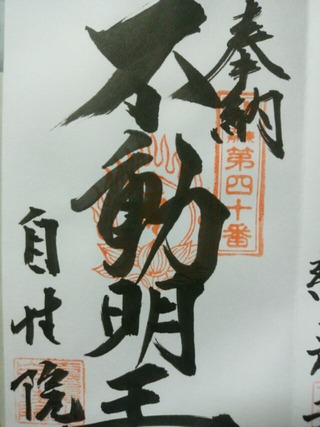 奉納
第四十番
不動明王
自性院